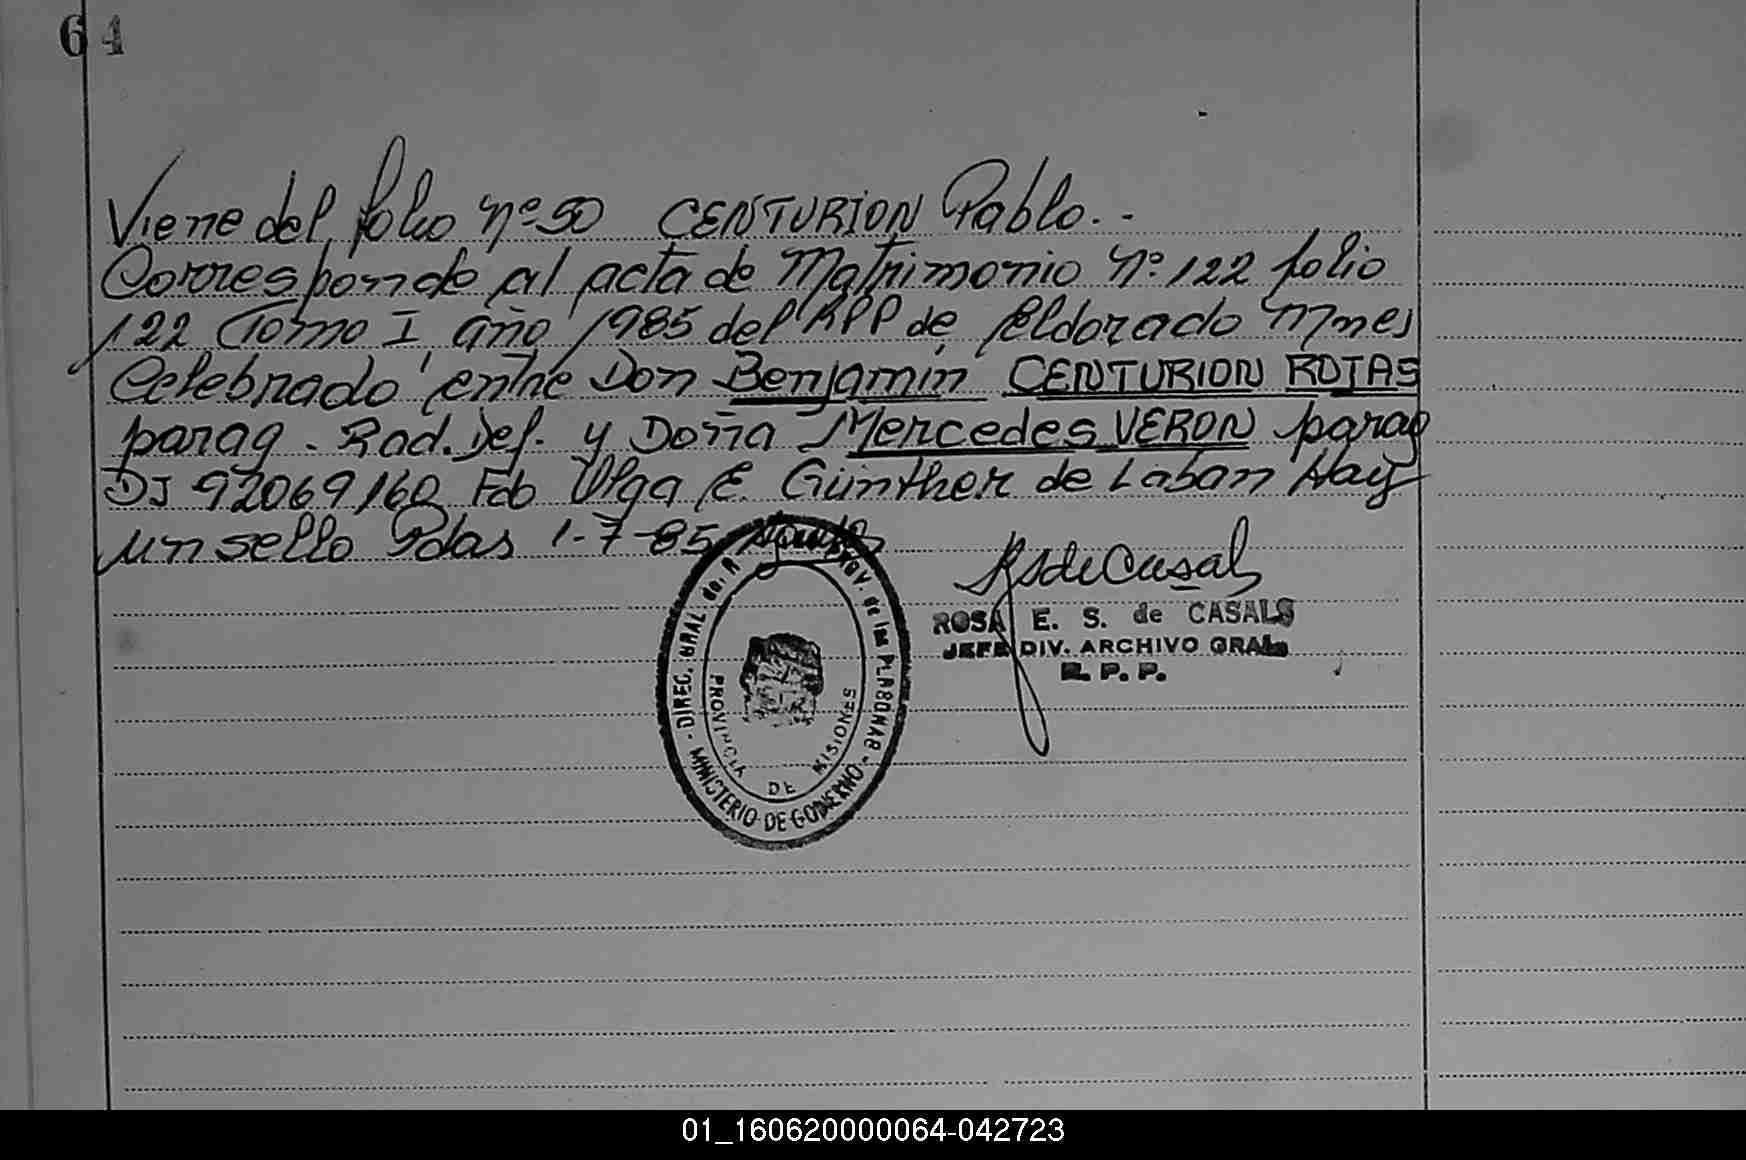 64
Viene del folio Nº 50 CENTURION Pablo.-
Corresponde al acta de Matrimonio Nº 122 folio
122 Tomo I año 1985 del RPP de Eldorado Mnes
Celebrado entre Don Benjamin CENTURION ROJAS
parag. Rad. Def. y Doña Mercedes VERON parag
DJ 92069160 Fdo Olga E. Günther de Laban Hay
un sello Pdas 1-7-85
RSdeCasals
ROSA E. S. de CASALS
JEFE DIV. ARCHIVO GRAL
R. P. P.
DIREC. GRAL de. R PROV. de las PERSONAS
MINISTERIO DE GOBIERNO
PROVINCIA DE MISIONES
01_160620000064-042723